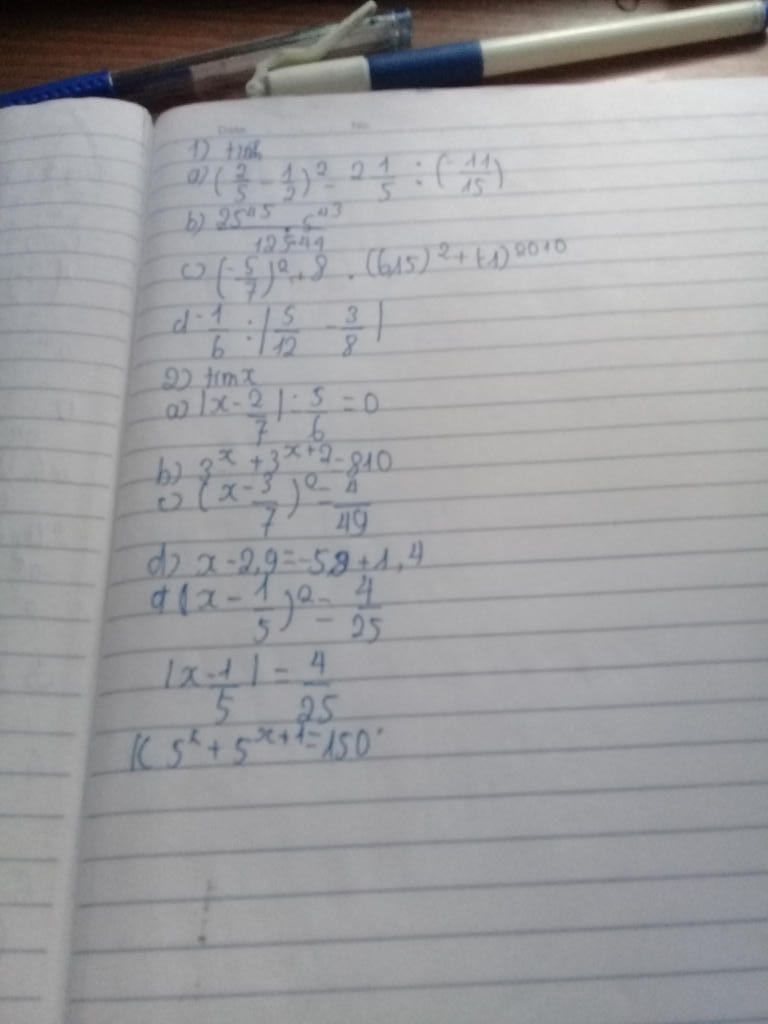 1) tính
a) (2/5 - 1/2)² - 2 1/5 : (-11/15)
b) 25⁴⁵ . 5⁴³ / 125⁴¹
c) (-5/7)⁰ + 8 . (6,15)² + (-1)²⁰²⁰
d -1/6 : |5/12 - 3/8|
2) tìm x
a) |x - 2/7| - 5/6 = 0
b) 3ˣ + 3ˣ⁺² = 810
c) (x - 3/7)² = 4/49
d) x - 2,9 = -5,8 + 1,4
(x - 1/5)² = 4/25
|x - 1/5| = 4/25
K 5ˣ + 5ˣ⁺¹ = 150